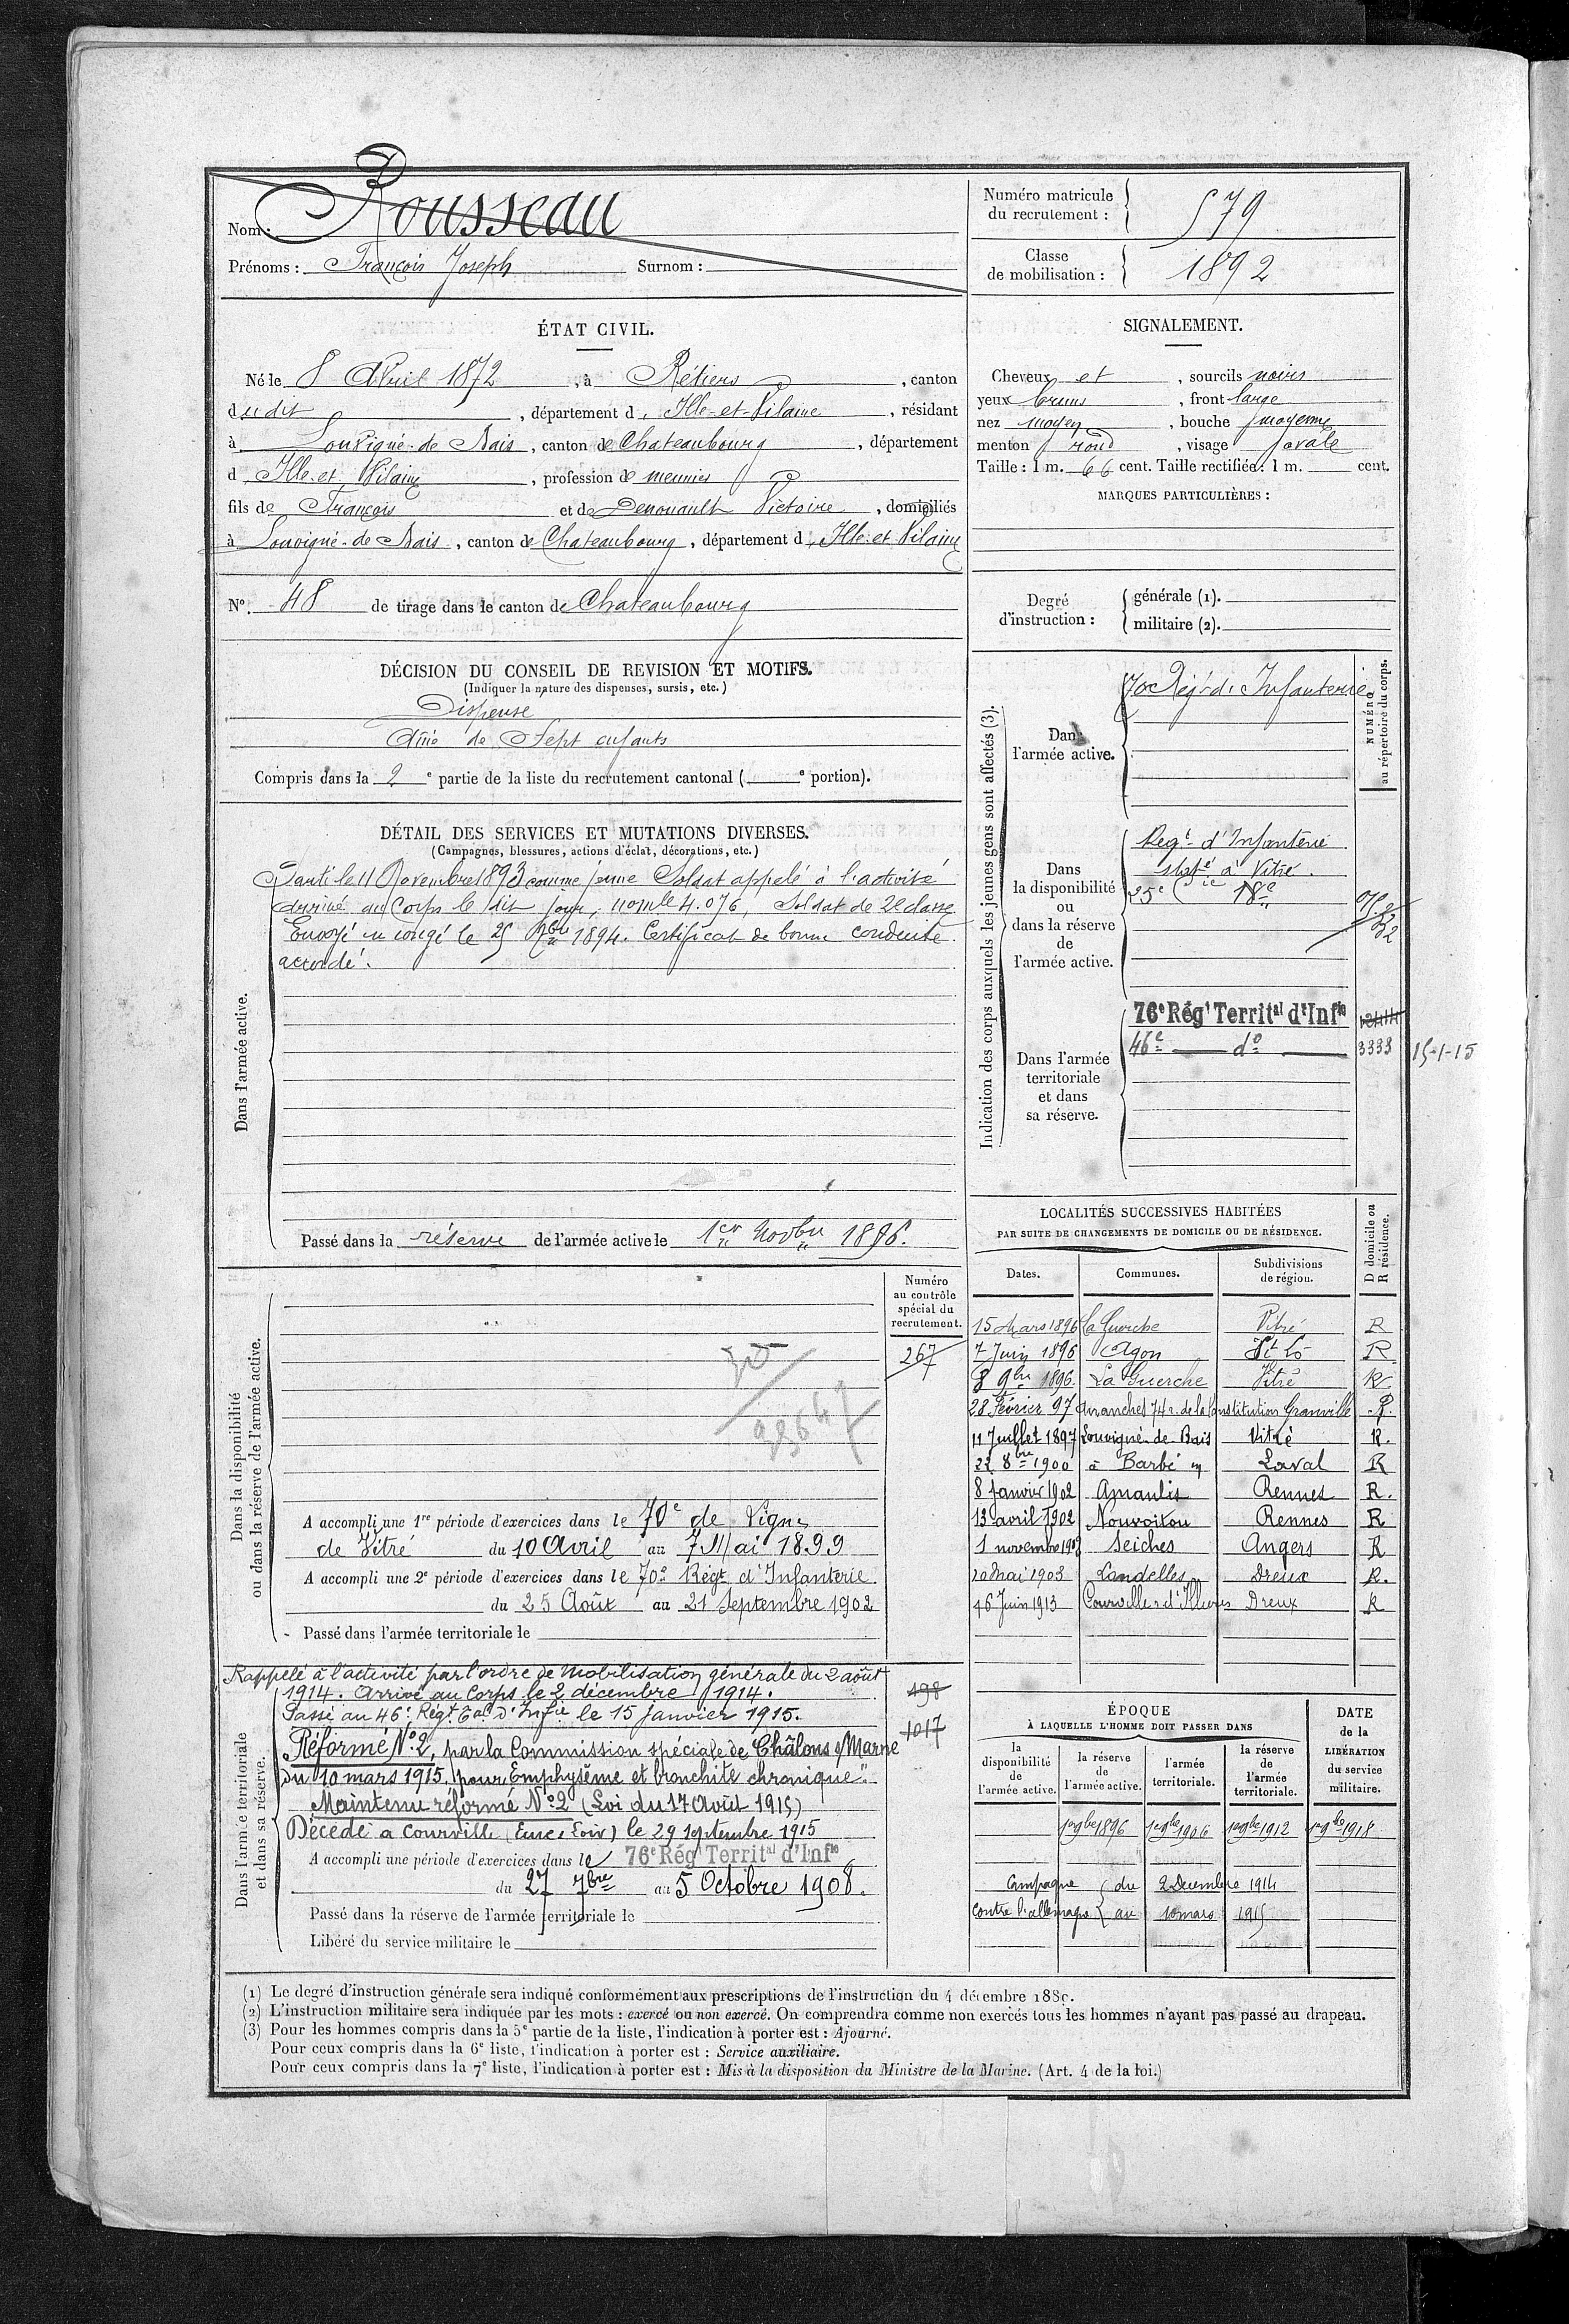 Nom : Rousseau
Prénoms : François Joseph Surnom :
Numéro matricule du recrutement : 579
Classe de mobilisation : 1892
ÉTAT CIVIL.
Né le 8 Avril 1872, à Rétiers, canton
dudit, département d'Ille-et-Vilaine, résidant
à Louvigné-de-Bais, canton de Chateaubourg, département
d'Ille-et-Vilaine, profession de meunier
fils de François et de Denouault Victoire, domiciliés
à Louvigné-de-Bais, canton de Chateaubourg, département d'Ille-et-Vilaine
N° 48 de tirage dans le canton de Chateaubourg
SIGNALEMENT.
Cheveux et, sourcils noirs
yeux bruns, front large
nez moyen, bouche moyenne
menton rond, visage ovale
Taille : 1 m. 66 cent. Taille rectifiée : 1 m. cent.
MARQUES PARTICULIÈRES :
Degré d'instruction : générale (1).
militaire (2).
DÉCISION DU CONSEIL DE REVISION ET MOTIFS.
(Indiquer la nature des dispenses, sursis, etc.)
Dispensé
Aîné de Sept enfants
Compris dans la 2e partie de la liste du recrutement cantonal ( e portion).
DÉTAIL DES SERVICES ET MUTATIONS DIVERSES.
(Campagnes, blessures, actions d'éclat, décorations, etc.)
Dans l'armée active.
Parti le 11 Novembre 1893 comme jeune Soldat appelé à l'activité
Arrivé au Corps le dit jour, nomle 4.076, Soldat de 2e classe
Envoyé en congé le 25 1894. Certificat de bonne conduite
accordé.
Passé dans la réserve de l'armée active le 1er Novbre 1896.
Indication des corps auxquels les jeunes gens sont affectés (3).
NUMÉRO au répertoire du corps.
Dans l'armée active.
70e Régt d'Infanterie
Dans la disponibilité ou dans la réserve de l'armée active.
Regt d'Infanterie
statné à Vitré.
Dans l'armée territoriale et dans sa réserve.
76e Régt Territal d'Infie
46e do 3338 15-1-15
LOCALITÉS SUCCESSIVES HABITÉES
PAR SUITE DE CHANGEMENTS DE DOMICILE OU DE RÉSIDENCE.
Dates. Communes. Subdivisions de région. D domicile ou R résidence.
15 Mars 1896 La Guerche Vitré R
7 Juin 1896 Agon St Lô R
8 9bre 1896. La Guerche Vitré R
28 Février 97 Avranches 74 r. de la Constitution Granville R.
11 Juillet 1897 Louvigné-de Bais Vitré R.
22 8bre 1900 à Barbé Laval R
8 Janvier 1902 Amanlis Rennes R.
13 avril 1902 Nouvoitou Rennes R
1 novembre 190 Seiches Angers R
20 Mai 1903 Landelles Dreux R.
Juin 1913 Courville Dreux R
Dans la disponibilité ou dans la réserve de l'armée active.
Numéro au contrôle spécial du recrutement.
267
A accompli une 1re période d'exercices dans le 70e de Ligne
de Vitré du 10 Avril au 7 Mai 1899
A accompli une 2e période d'exercices dans le 70e Régt d'Infanterie
du 25 Août au 21 Septembre 1902
Passé dans l'armée territoriale le
Dans l'armée territoriale et dans sa réserve.
Rappelé à l'activité par l'ordre de Mobilisation générale du 2 août
1914. Arrivé au Corps le 2 décembre 1914. 498
Passé au 46e Régt Tal d'Infie le 15 janvier 1915.
1017
Réformé No 2, par la Commission spéciale de Châlons s/Marne
du 10 mars 1915. pour "Emphysème et bronchite chronique".
Maintenu réformé No 2 (Loi du 17 Août 1915)
Décédé à Courville (Eure & Loir) le 29 septembre 1915
A accompli une période d'exercices dans le 76e Rég Territal d'Infie
du 27 7bre au 5 Octobre 1908.
Passé dans la réserve de l'armée territoriale le
Libéré du service militaire le
ÉPOQUE
À LAQUELLE L'HOMME DOIT PASSER DANS
la disponibilité de l'armée active. la réserve de l'armée active. l'armée territoriale. la réserve de l'armée territoriale.
DATE de la LIBÉRATION du service militaire.
1er 9bre 1896 1er 9bre 1906 1er 9bre 1912 1er 9bre 1918
Campagne du 2 Décembre 1914
contre l'allemagne au 10 mars 1915
(1) Le degré d'instruction générale sera indiqué conformément aux prescriptions de l'instruction du 4 décembre 1889.
(2) L'instruction militaire sera indiquée par les mots : exercé ou non exercé. On comprendra comme non exercés tous les hommes n'ayant pas passé au drapeau.
(3) Pour les hommes compris dans la 5e partie de la liste, l'indication à porter est : Ajourné.
Pour ceux compris dans la 6e liste, l'indication à porter est : Service auxiliaire.
Pour ceux compris dans la 7e liste, l'indication à porter est : Mis à la disposition du Ministre de la Marine. (Art. 4 de la loi.)